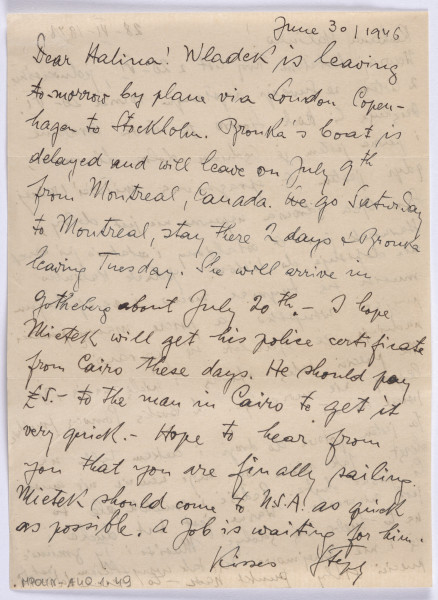 June 30/1946
Dear Halina! Wladek is leaving
to-morrow by plane via London Copen-
hagen to Stockholm. Bronka's boat is
delayed and will leave on July 9th
from Montreal, Canada. We go Saturday
to Montreal, stay there 2 days & Bronka
leaving Tuesday. She will arrive in
Gotheberg about July 20th. - I hope
Mietek will get his police certificate
from Cairo these days. He should pay
£5.- to the man in Cairo to get it
very quick. - Hope to hear from
you that you are finally sailing.
Mietek should come to U.S.A. as quick
as possible. A job is waiting for him.
Kisses